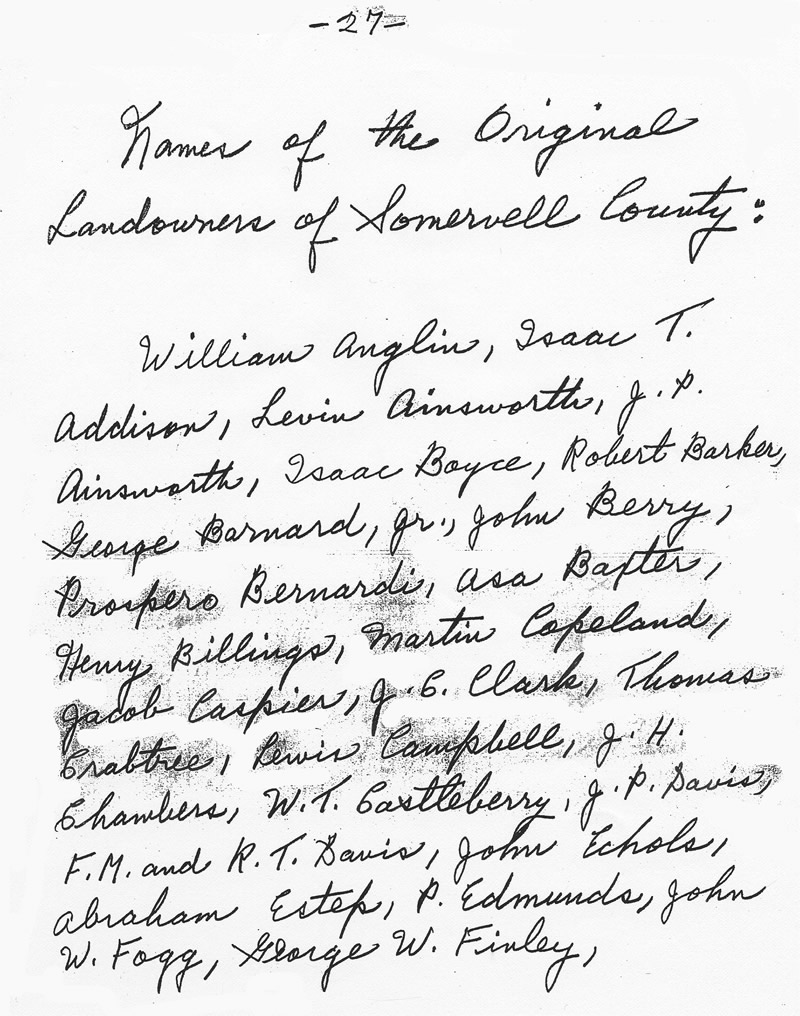 -27-
Names of the Original
Landowners of Somervell County:
William Anglin, Isaac T.
Addison, Levin Ainsworth, J. P.
Ainsworth, Isaac Boyce, Robert Barker,
George Barnard, Jr., John Berry,
Prospero Bernardi, Asa Baxter,
Henry Billings, Martin Copeland,
Jacob Caspier, J. C. Clark, Thomas
Crabtree, Lewis Campbell, J. H.
Chambers, W.T. Castleberry, J. P. Davis,
F.M. and R. T. Davis, John Echols,
Abraham Estep, P. Edmunds, John
W. Fogg, George W. Finley,